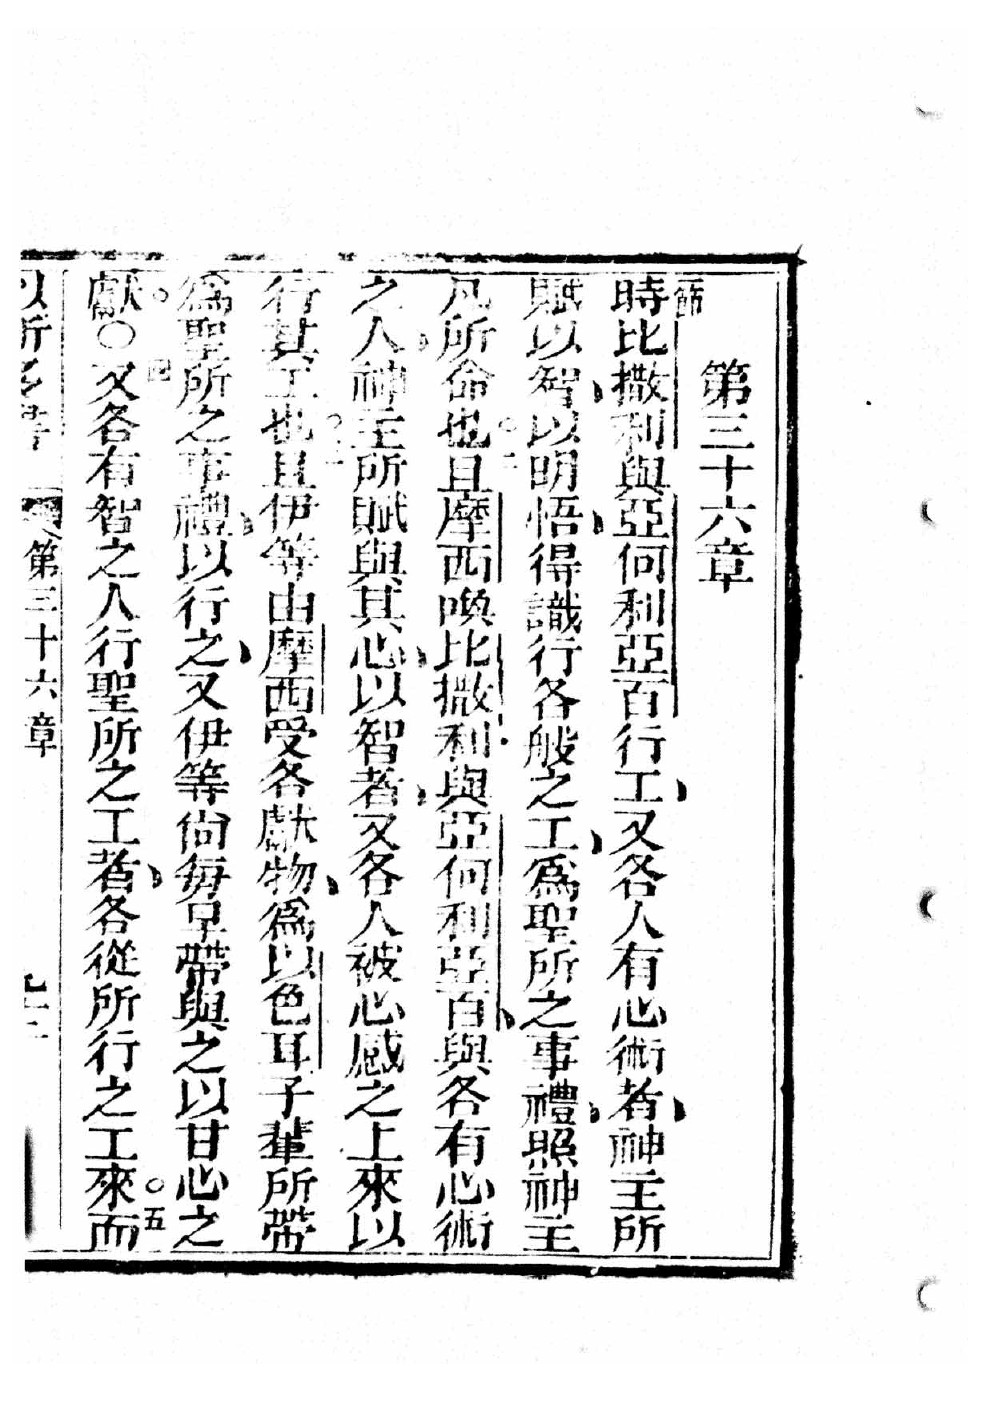 第三十六章
節時比撒利與亞何利亞百行工又各人有心術者神主所
賦以智以明悟得識行各般之工為聖所之事禮照神主
凡所命也○二且摩西喚比撒利與亞何利亞百與各有心術
之人神主所賦與其心以智者又各人被心感之上來以
行其工也○三且伊等由摩西受各獻物為以色耳子輩所帶
為聖所之事禮以行之又伊等尚每早帶與之以甘心之
獻○四又各有智之人行聖所之工者各從所行之工來而○五
第三十六章